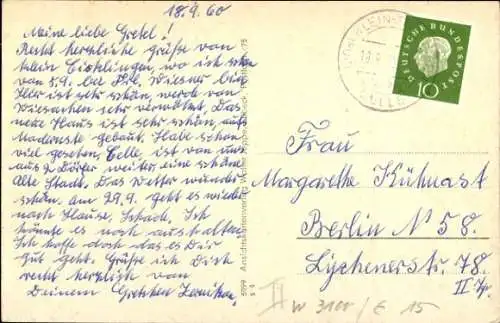 18.9.60
Meine liebe Gretel!
Recht herzliche Grüße von
Klein Eicklingen, wo ich schon
von 5.9. bei
Hier ist sehr schön, werde von
sehr verwöhnt. Das
neue Haus ist sehr schön, aufs
Modernste gebaut. Habe schon
viel gesehen, Celle ist von uns
aus 2 Dörfer weiter, eine schöne
Alte Stadt. Das Wetter wunder-
schön. Am 29.9. geht es wieder
nach Hause, schade. Ich
könnte es noch aushalten.
Ich hoffe doch das es Dir
gut geht. Grüße ich Dich
recht herzlich von
Deinem Gretchen
DEUTSCHE BUNDESPOST
10
Frau
Margarethe Kühnast
Berlin N 58.
Lychenerstr. 78.
II Tr.
W 3100 / E 15